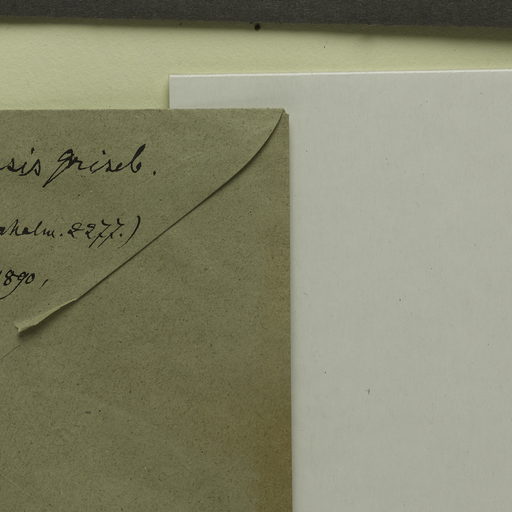 sis Griseb.
aholm. 2277.)
1890,